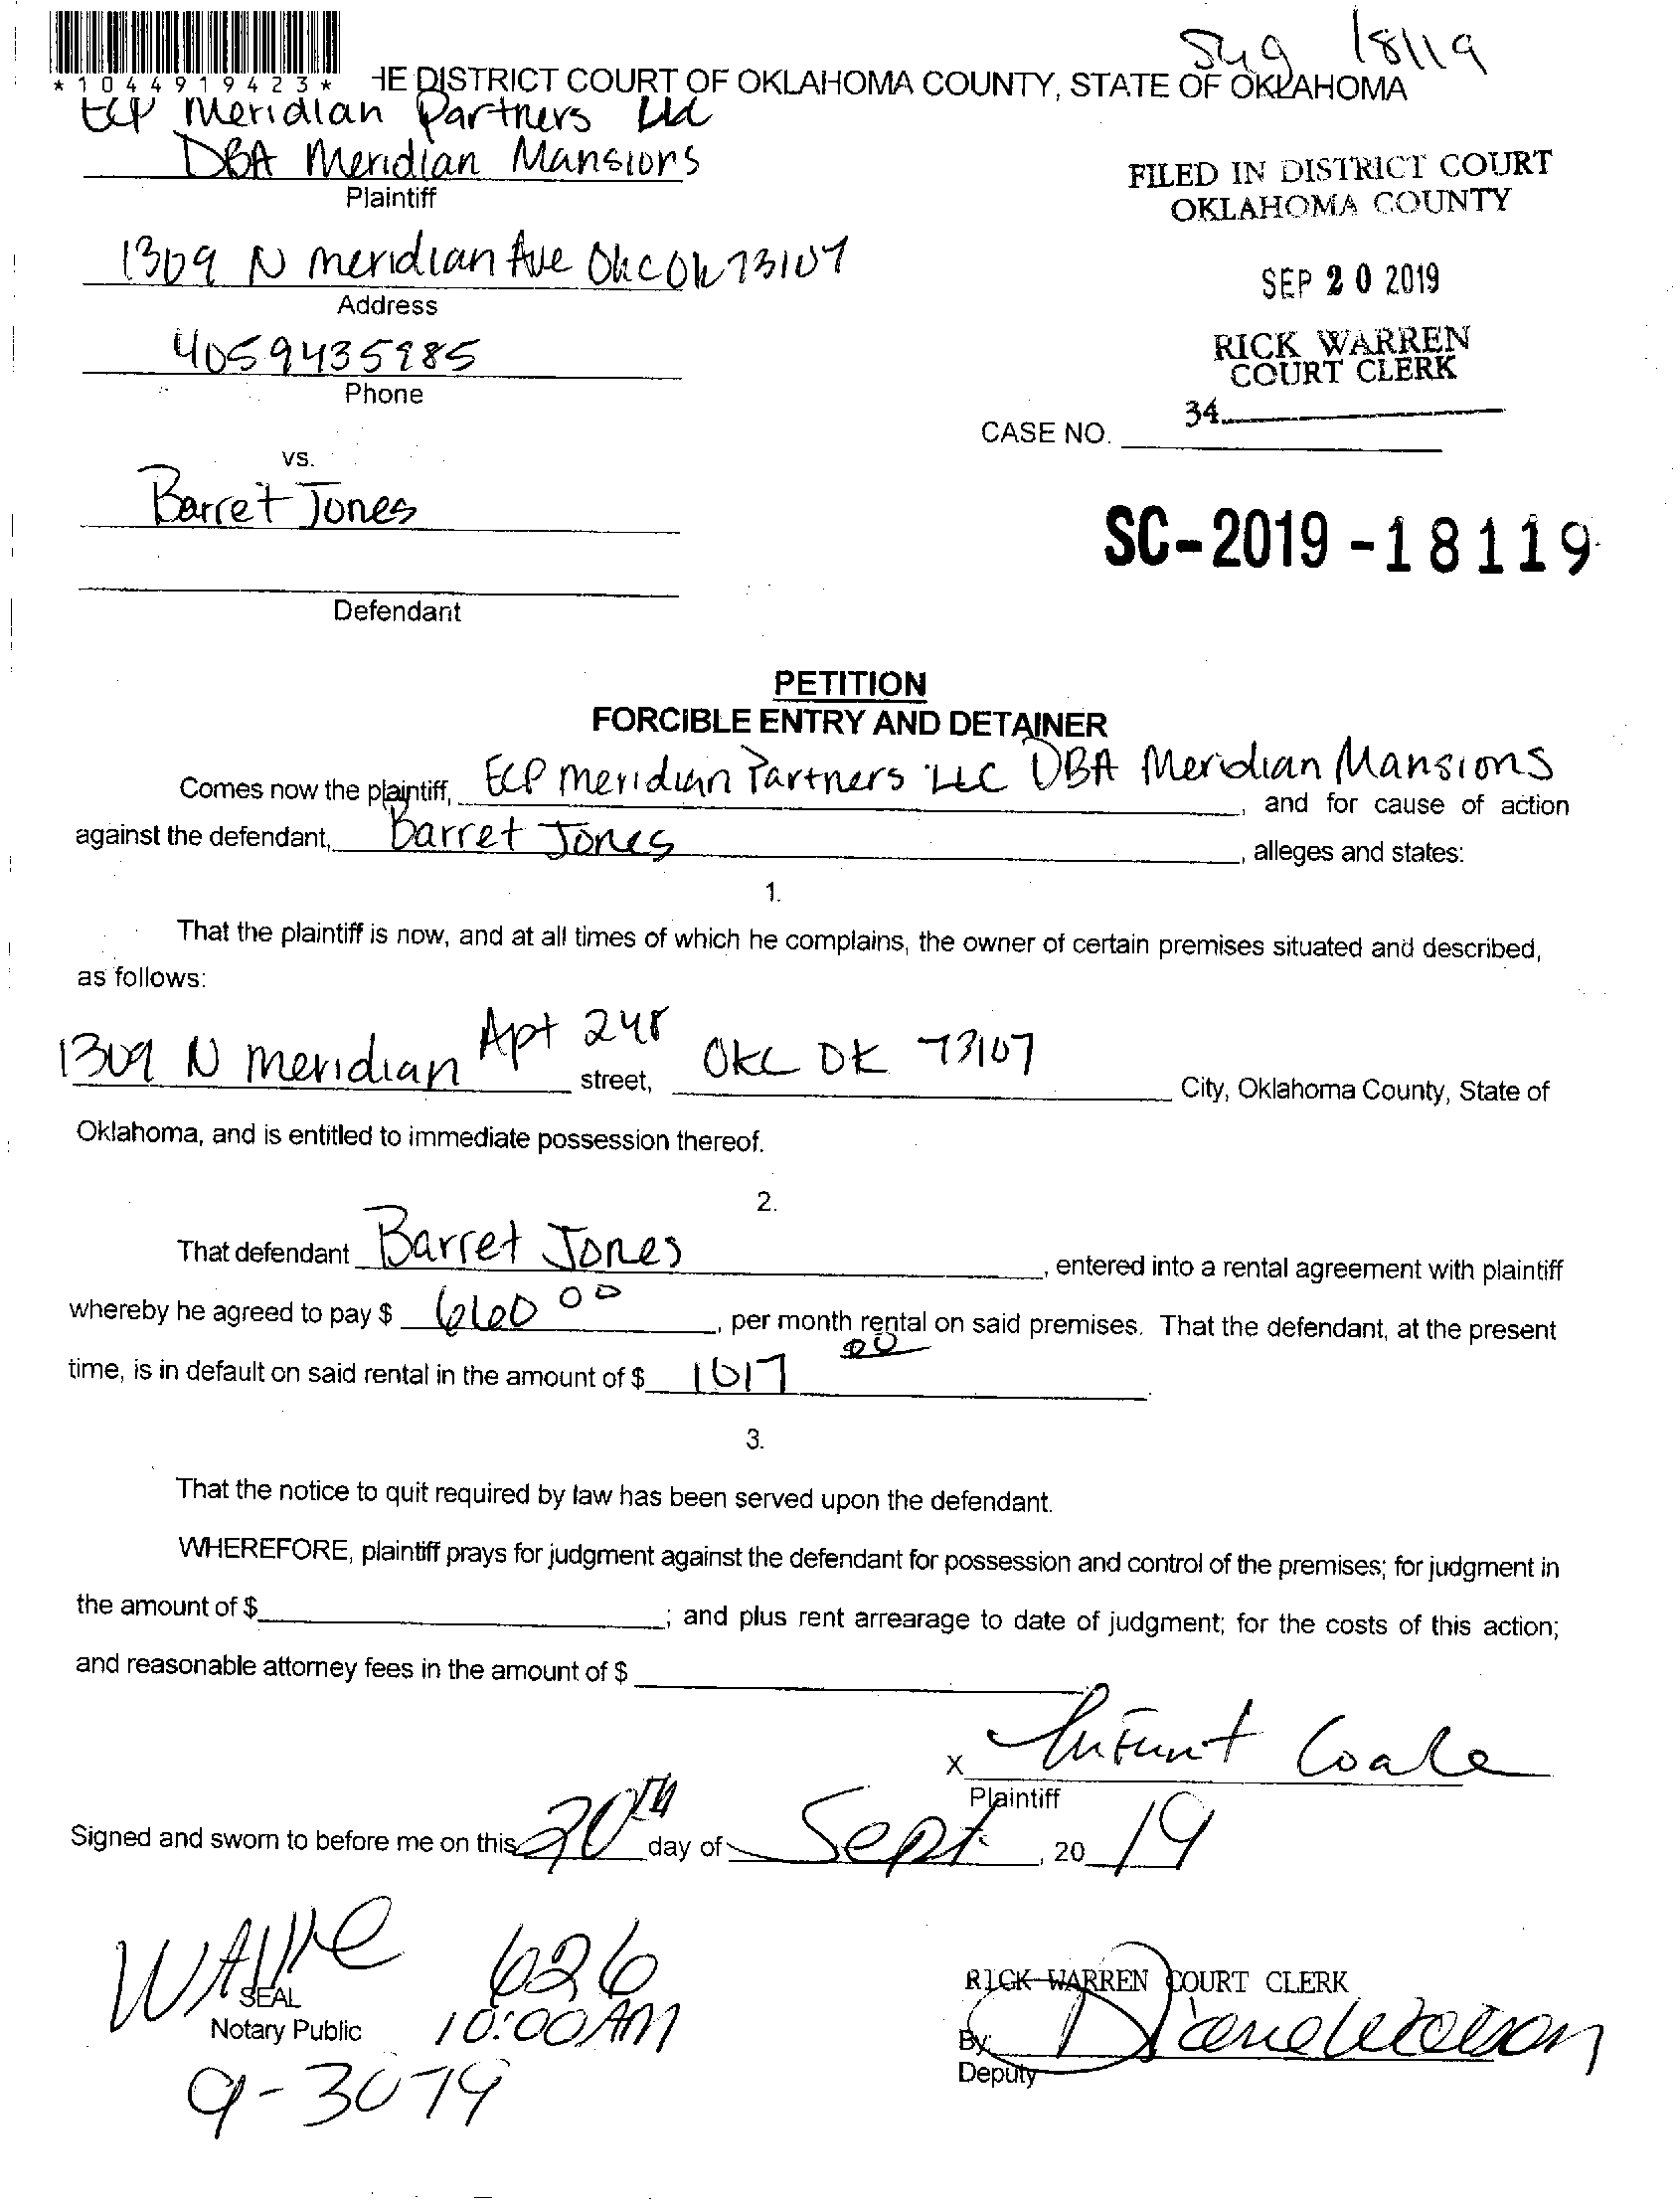 18119
*1044919423* HE DISTRICT COURT OF OKLAHOMA COUNTY, STATE OF OKLAHOMA
ECP Meridian Partners LLC
DBA Meridian Mansions
Plaintiff
FILED IN DISTRICT COURT
OKLAHOMA COUNTY
1309 N Meridian Ave OKC OK 73107
Address
SEP 20 2019
4059435985
Phone
RICK WARREN
COURT CLERK
34
CASE NO.
vs.
Barret Jones
SC-2019-18119
Defendant
PETITION
FORCIBLE ENTRY AND DETAINER
Comes now the plaintiff, ECP Meridian Partners LLC DBA Meridian Mansions, and for cause of action
against the defendant, Barret Jones, alleges and states:
1.
That the plaintiff is now, and at all times of which he complains, the owner of certain premises situated and described,
as follows:
1309 N Meridian Apt 248 street, OKC OK 73107 City, Oklahoma County, State of
Oklahoma, and is entitled to immediate possession thereof.
2.
That defendant Barret Jones, entered into a rental agreement with plaintiff
whereby he agreed to pay $ 660 00, per month rental on said premises. That the defendant, at the present
time, is in default on said rental in the amount of $ 1017 00
3.
That the notice to quit required by law has been served upon the defendant.
WHEREFORE, plaintiff prays for judgment against the defendant for possession and control of the premises; for judgment in
the amount of $ ; and plus rent arrearage to date of judgment; for the costs of this action;
and reasonable attorney fees in the amount of $
X Coale
Plaintiff
Signed and sworn to before me on this 20th day of Sept, 20 19
626
SEAL
10:00 AM
Notary Public
9-3079
RICK WARREN COURT CLERK
By:
Deputy